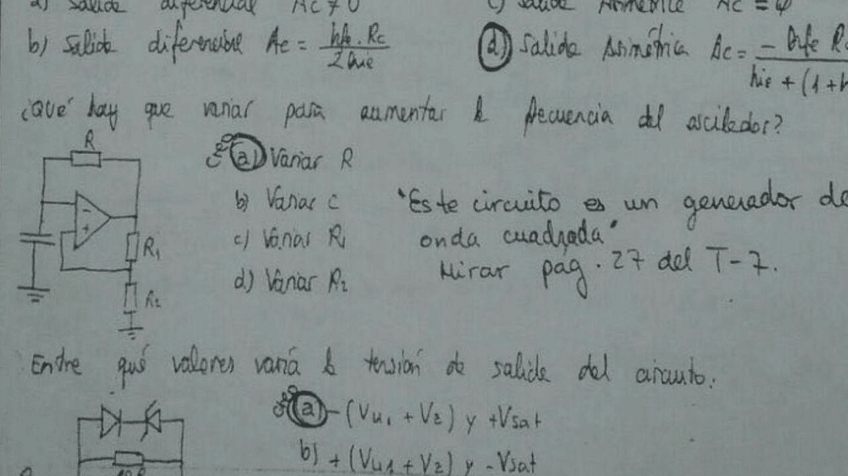 a) Salida diferencial Ac ≠ 0
c) Salida Asimétrica Ac = φ
b) Salida diferencial Ac = hfe . Rc / 2 hie
d) Salida Asimétrica Ac = - hfe Rc / hie + (1 + h
¿Qué hay que variar para aumentar la frecuencia del oscilador?
R
a) Variar R
b) Variar C
c) Variar R1
d) Variar R2
"Este circuito es un generador de
onda cuadrada"
Mirar pág. 27 del T-7.
-
+
R1
R2
Entre qué valores variá la tensión de salida del circuito:
a) -(Vu1 + Vz) y +Vsat
b) +(Vu1 + Vz) y -Vsat